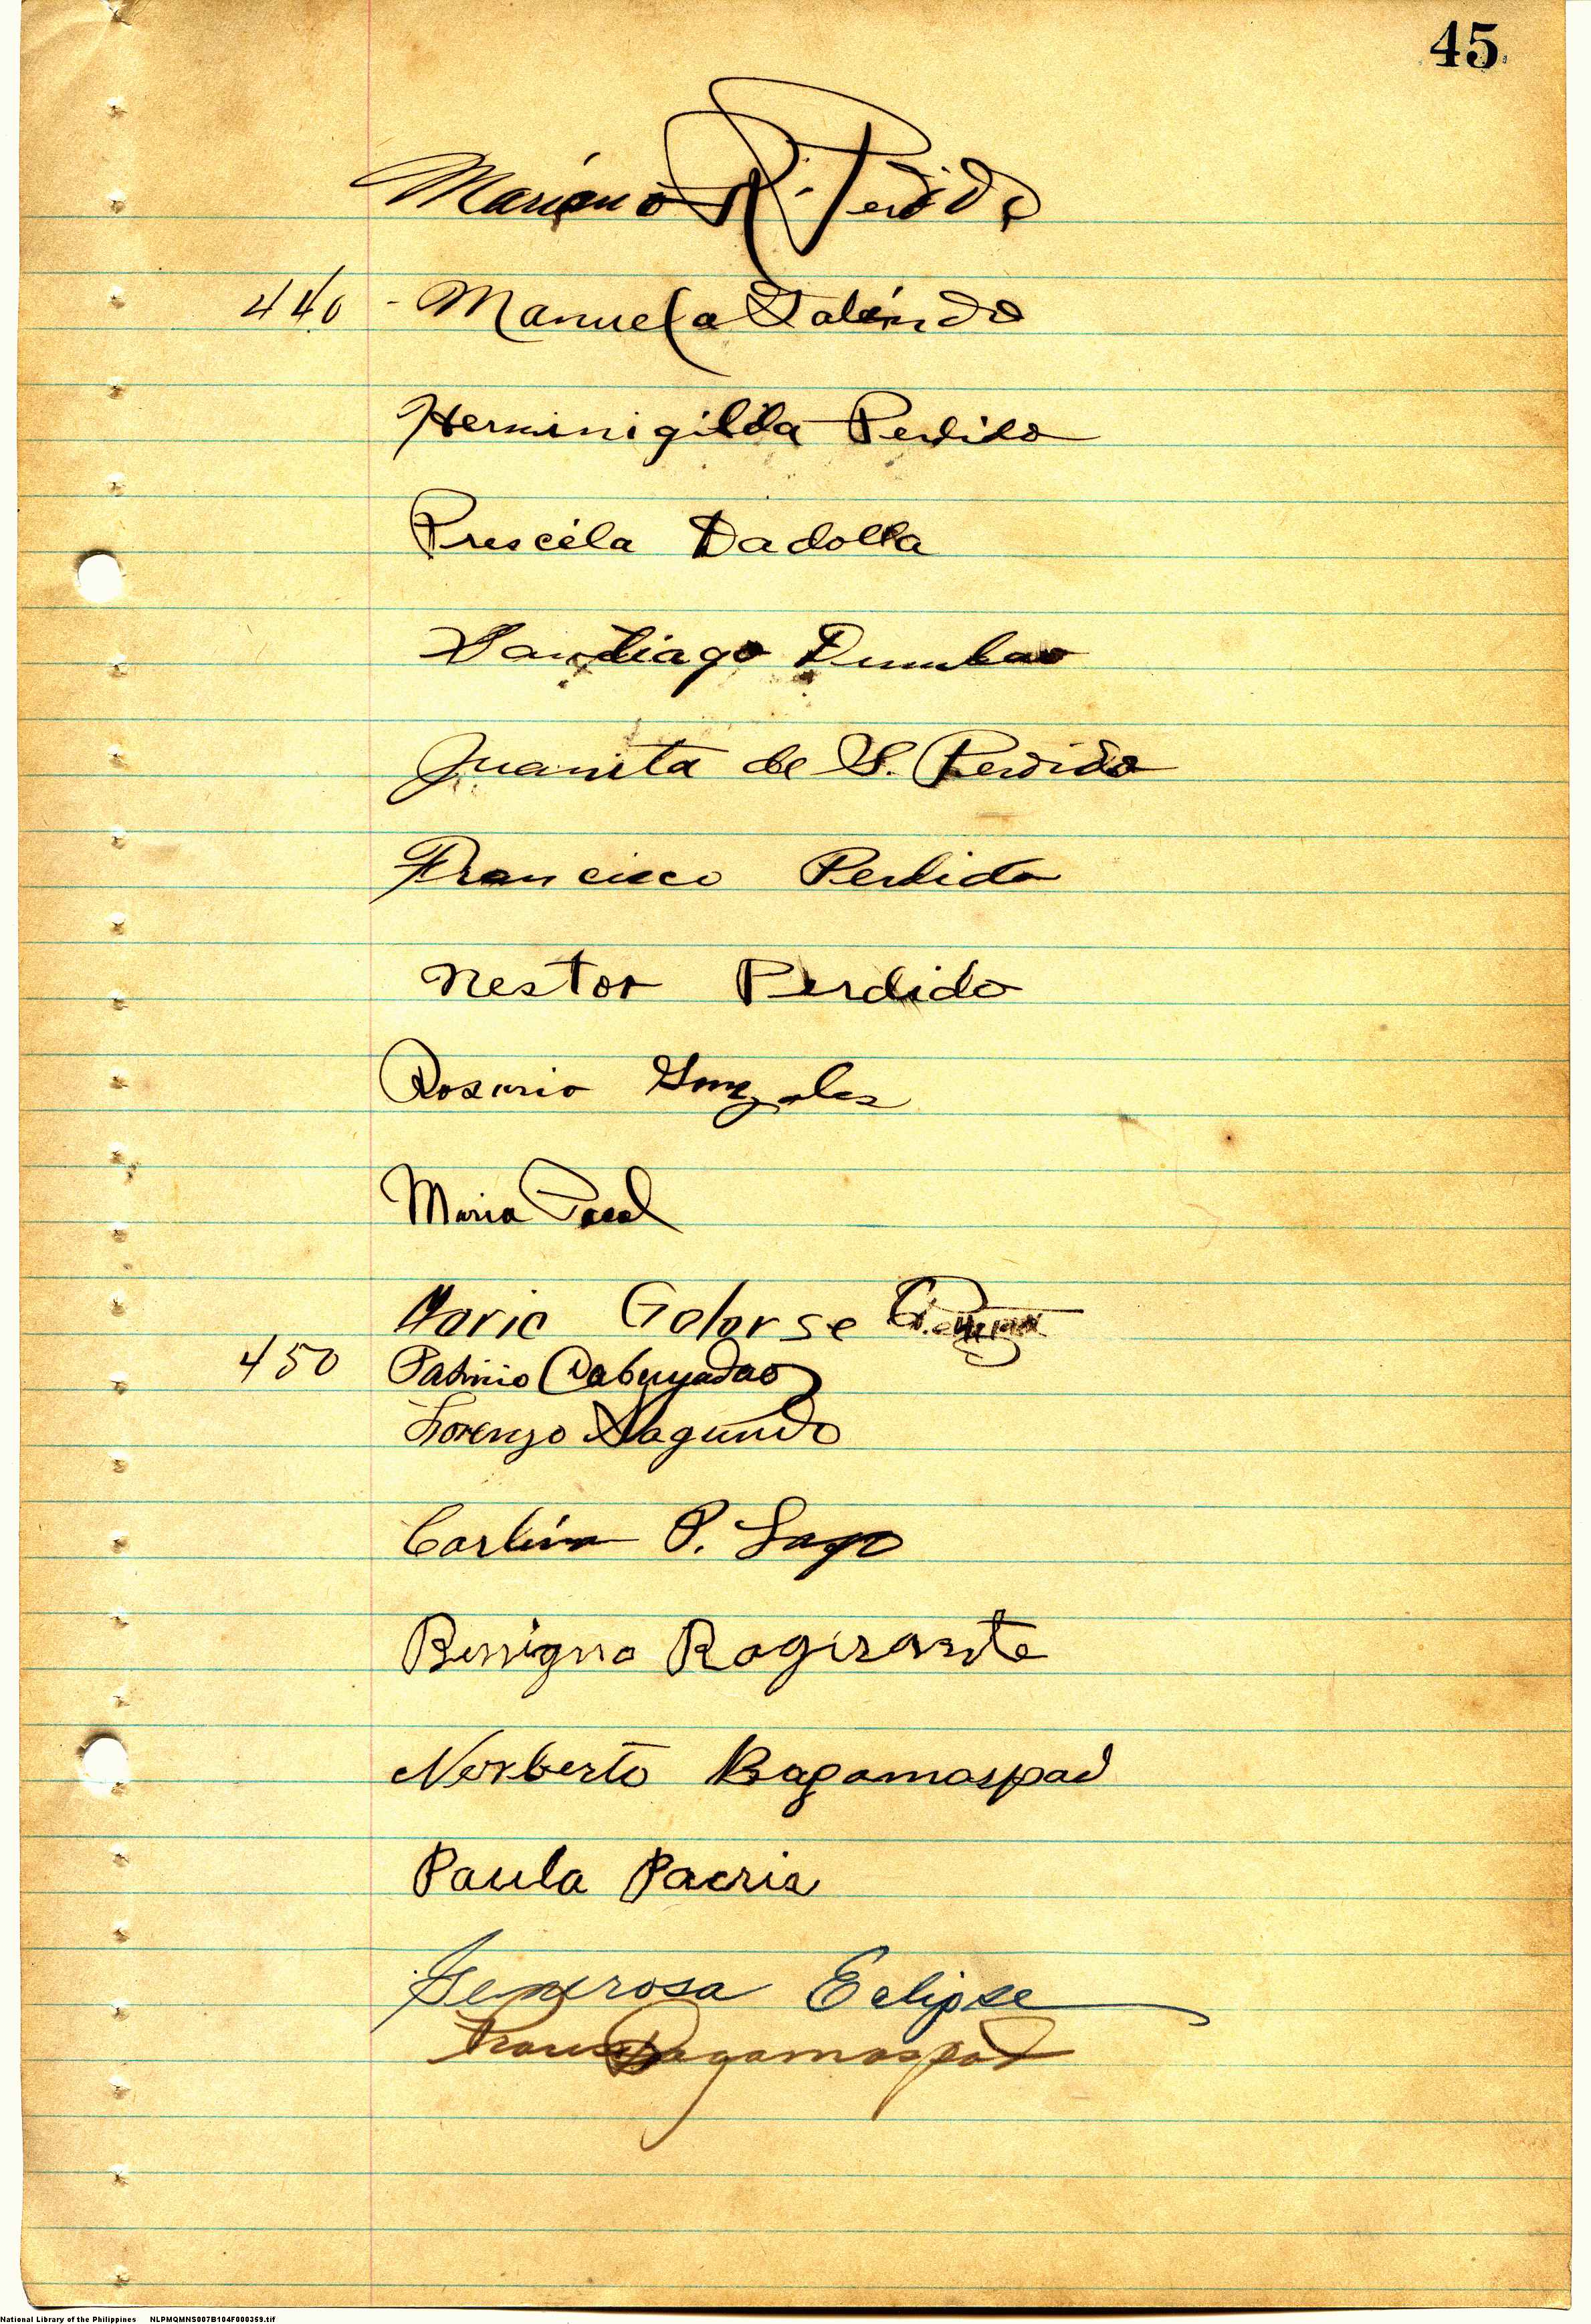 45
Mariano R. Perdido
440 - Manuela Galindo
Herminigilda Perdido
Prescéla Dadolla
Santiago Dumlao
Juanita de G. Perdido
Francisco Perdido
Nestor Perdido
Rosario Gonzales
Maria
Maria Golorse
450 Patricio Cabuyadao
Lorenzo Sagundo
Carlina P. Lago
Benigna Ragirante
Norberto Bagamaspad
Paula Pacris
Generosa Eclipse
Bagamaspad
National Library of the Philippines NLPMQMNS007B104F000359.tif